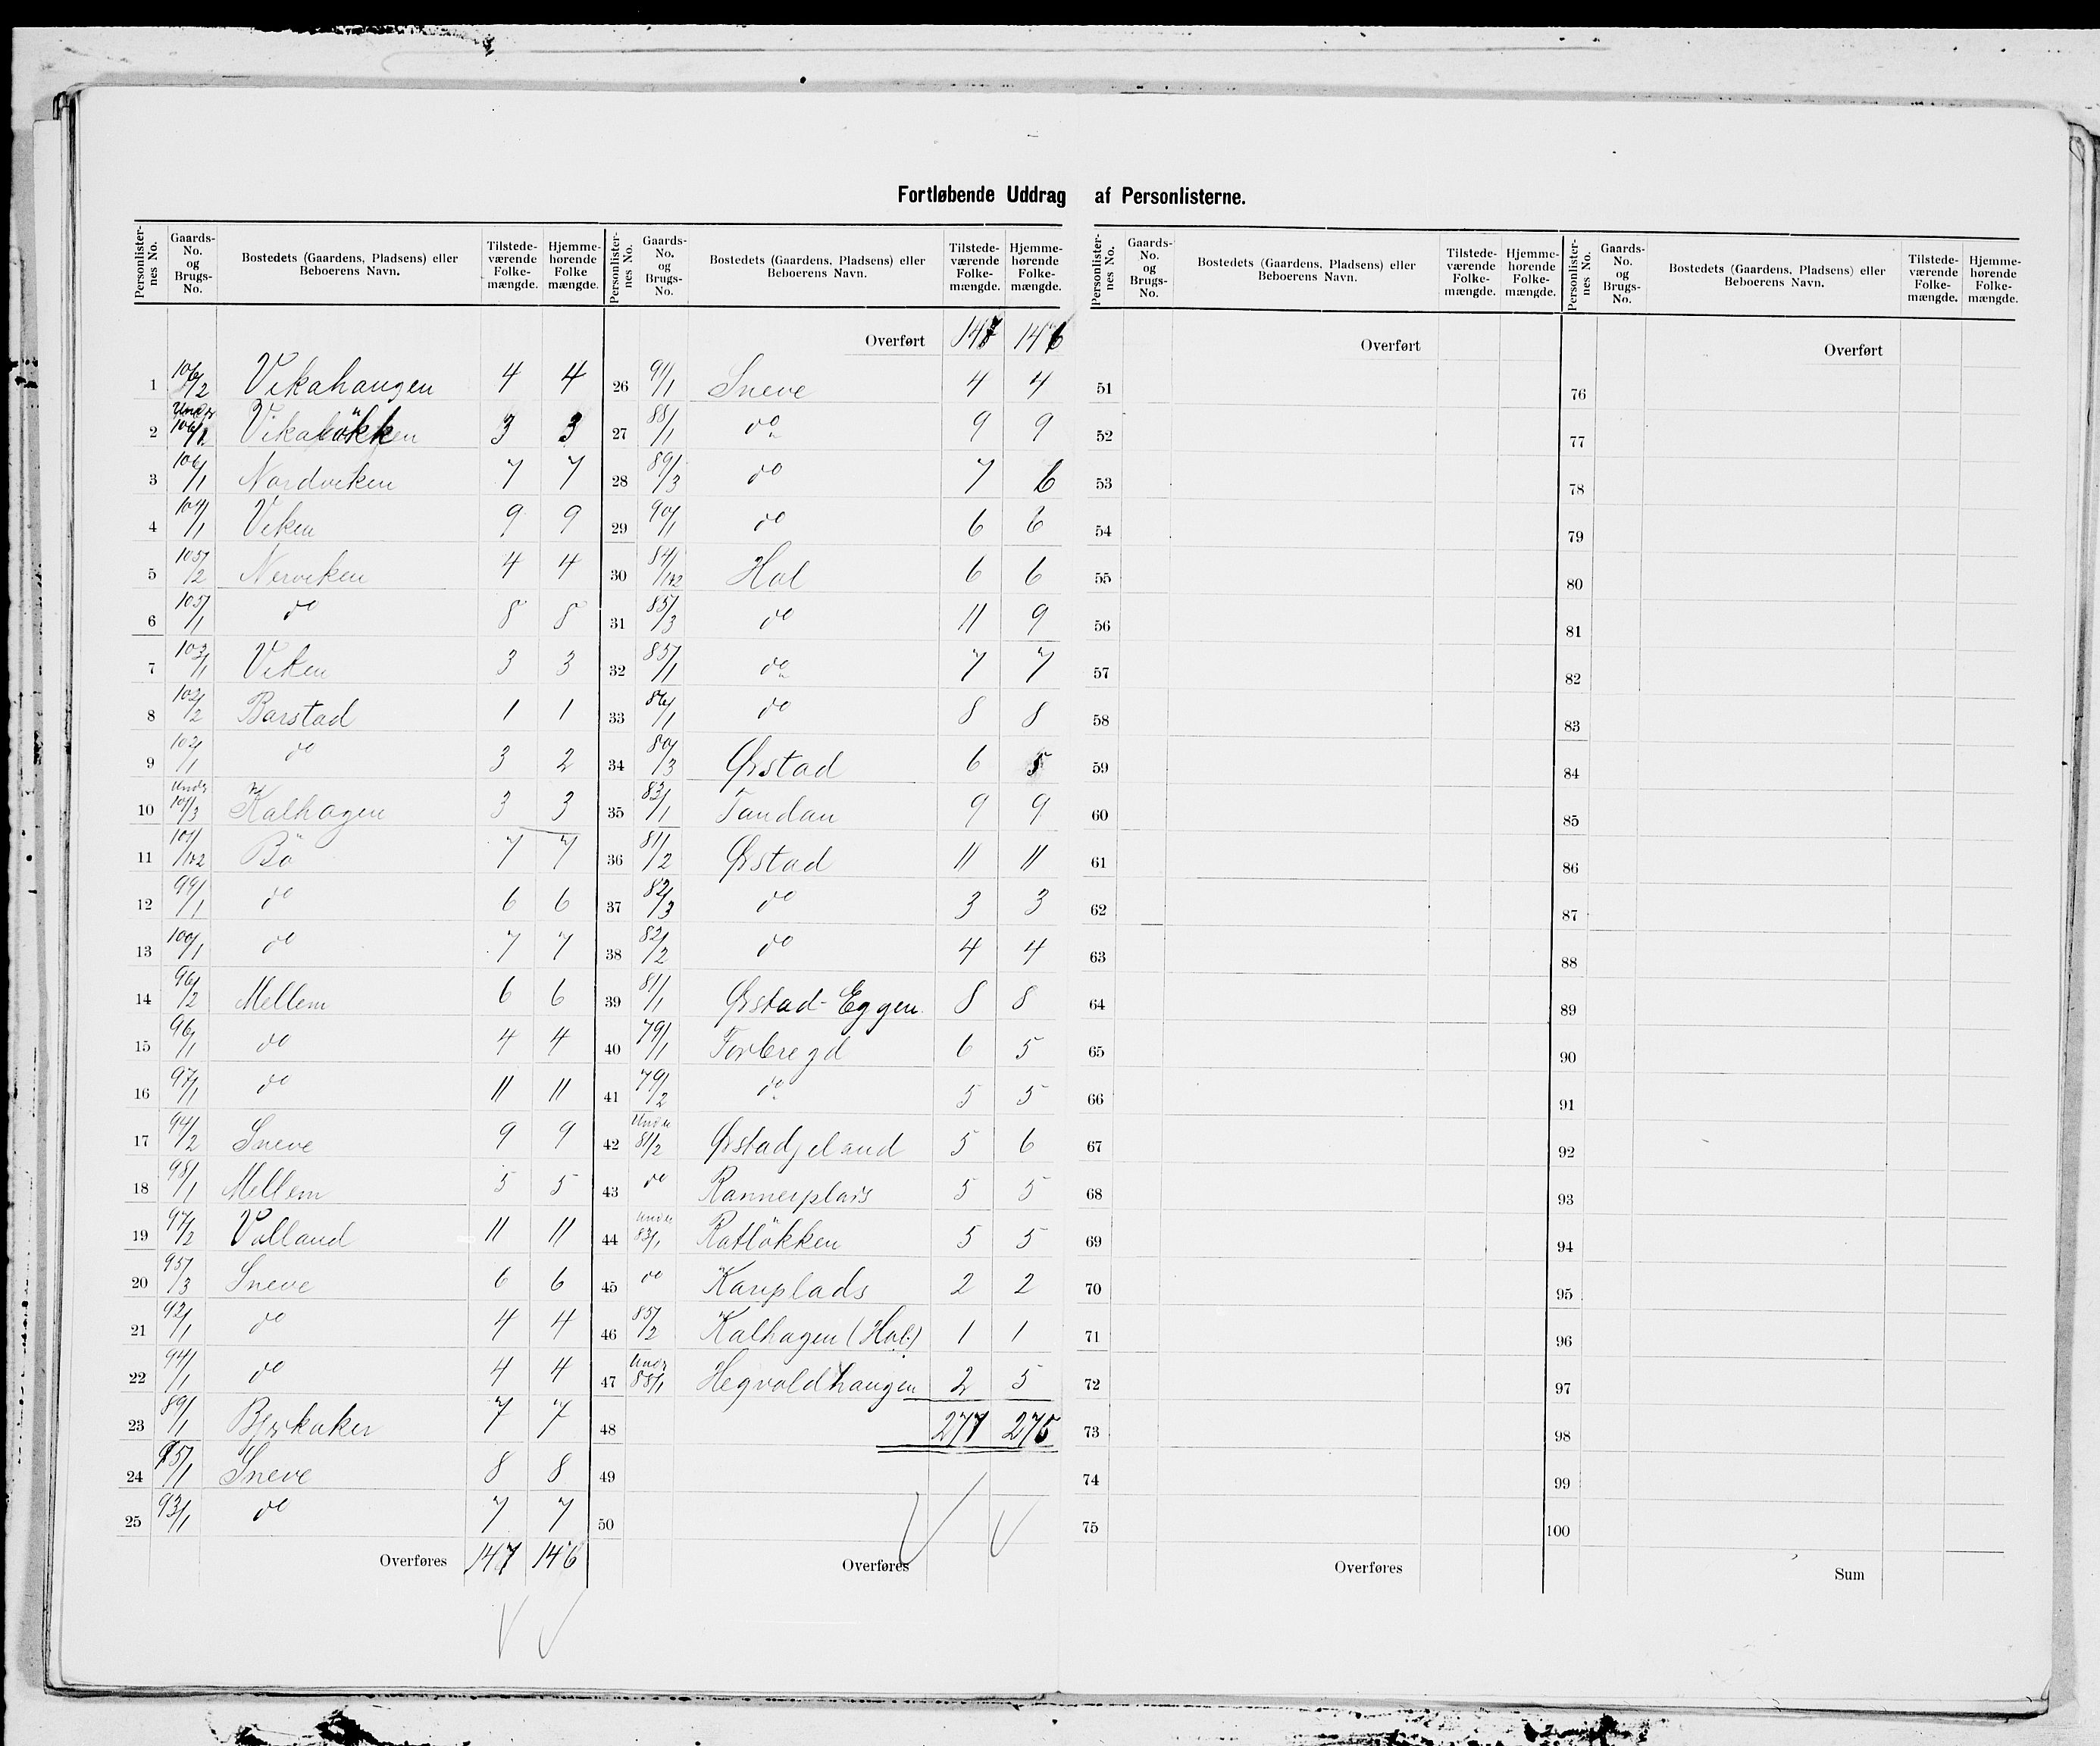 Fortløbende Uddrag af Personlisterne.
Personlister-nes No. | Gaards-No. og Brugs-No. | Bostedets (Gaardens, Pladsens) eller Beboerens Navn. | Tilstede-værende Folke-mængde. | Hjemme-hørende Folke mængde.
1 106/2 Vikahaugen 4 4
2 Under 106/1 Vikaløkken 3 3
3 106/1 Nordviken 7 7
4 104/1 Viken 9 9
5 105/2 Nerviken 4 4
6 105/1 do 8 8
7 103/1 Viken 3 3
8 102/2 Barstad 1 1
9 102/1 do 3 2
10 Under 101/3 Kalhagen 3 3
11 101/1&2 Bö 7 7
12 99/1 do 6 6
13 100/1 do 7 7
14 96/2 Mellem 6 6
15 96/1 do 4 4
16 97/1 do 11 11
17 94/2 Sneve 9 9
18 98/1 Mellem 5 5
19 97/2 Volland 11 11
20 95/3 Sneve 6 6
21 92/1 do 4 4
22 94/1 do 4 4
23 89/1 Bjrkaker 7 7
24 95/1 Sneve 8 8
25 93/1 do 7 7
Overføres 147 146
Personlister-nes No. | Gaards-No. og Brugs-No. | Bostedets (Gaardens, Pladsens) eller Beboerens Navn. | Tilstede-værende Folke-mængde. | Hjemme-hørende Folke-mængde.
Overført 147 146
26 91/1 Sneve 4 4
27 88/1 do 9 9
28 89/3 do 7 6
29 90/1 do 6 6
30 84/1&2 Hol 6 6
31 85/3 do 11 9
32 85/1 do 7 7
33 86/1 do 8 8
34 80/3 Ørstad 6 5
35 83/1 Tandan 9 9
36 81/2 Ørstad 11 11
37 82/3 do 3 3
38 82/2 do 4 4
39 81/1 Ørstad-Eggen 8 8
40 79/1 Forbregd 6 5
41 79/2 do 5 5
42 Under 81/2 Ørstadjeland 5 6
43 do Rannesplads 5 5
44 Under 83/1 Ratlökken 5 5
45 do Kanplads 2 2
46 85/2 Kalhagen (Hol) 1 1
47 Under 88/1 Hegvoldhaugen 2 5
48 277 275
49
50
Overføres
Personlister-nes No. | Gaards-No. og Brugs-No. | Bostedets (Gaardens, Pladsens) eller Beboerens Navn. | Tilstede-værende Folke-mængde. | Hjemme-hørende Folke-mængde.
Overført
51
52
53
54
55
56
57
58
59
60
61
62
63
64
65
66
67
68
69
70
71
72
73
74
75
Overføres
Personlister-nes No. | Gaards-No. og Brugs-No. | Bostedets (Gaardens, Pladsens) eller Beboerens Navn. | Tilstede-værende Folke-mængde. | Hjemme-hørende Folke-mængde.
Overført
76
77
78
79
80
81
82
83
84
85
86
87
88
89
90
91
92
93
94
95
96
97
98
99
100
Sum